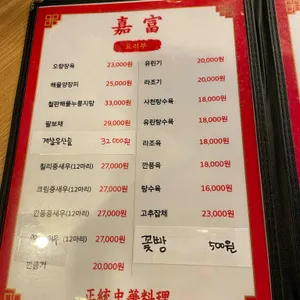 嘉富
요리부
오향장육 23,000원
해물양장피 25,000원
철판해물누룽지탕 33,000원
팔보채 29,000원
계살유산슬 32000원
칠리중새우(12마리) 27,000원
크림중새우(12마리) 27,000원
깐풍중새우(12마리) 27,000원
(12마리) 27,000원
깐풍기 20,000원
유린기 20,000원
라조기 20,000원
사천탕수육 18,000원
유린탕수육 18,000원
라조육 18,000원
깐풍육 18,000원
탕수육 16,000원
고추잡채 23,000원
꽃빵 500원
正統中華料理